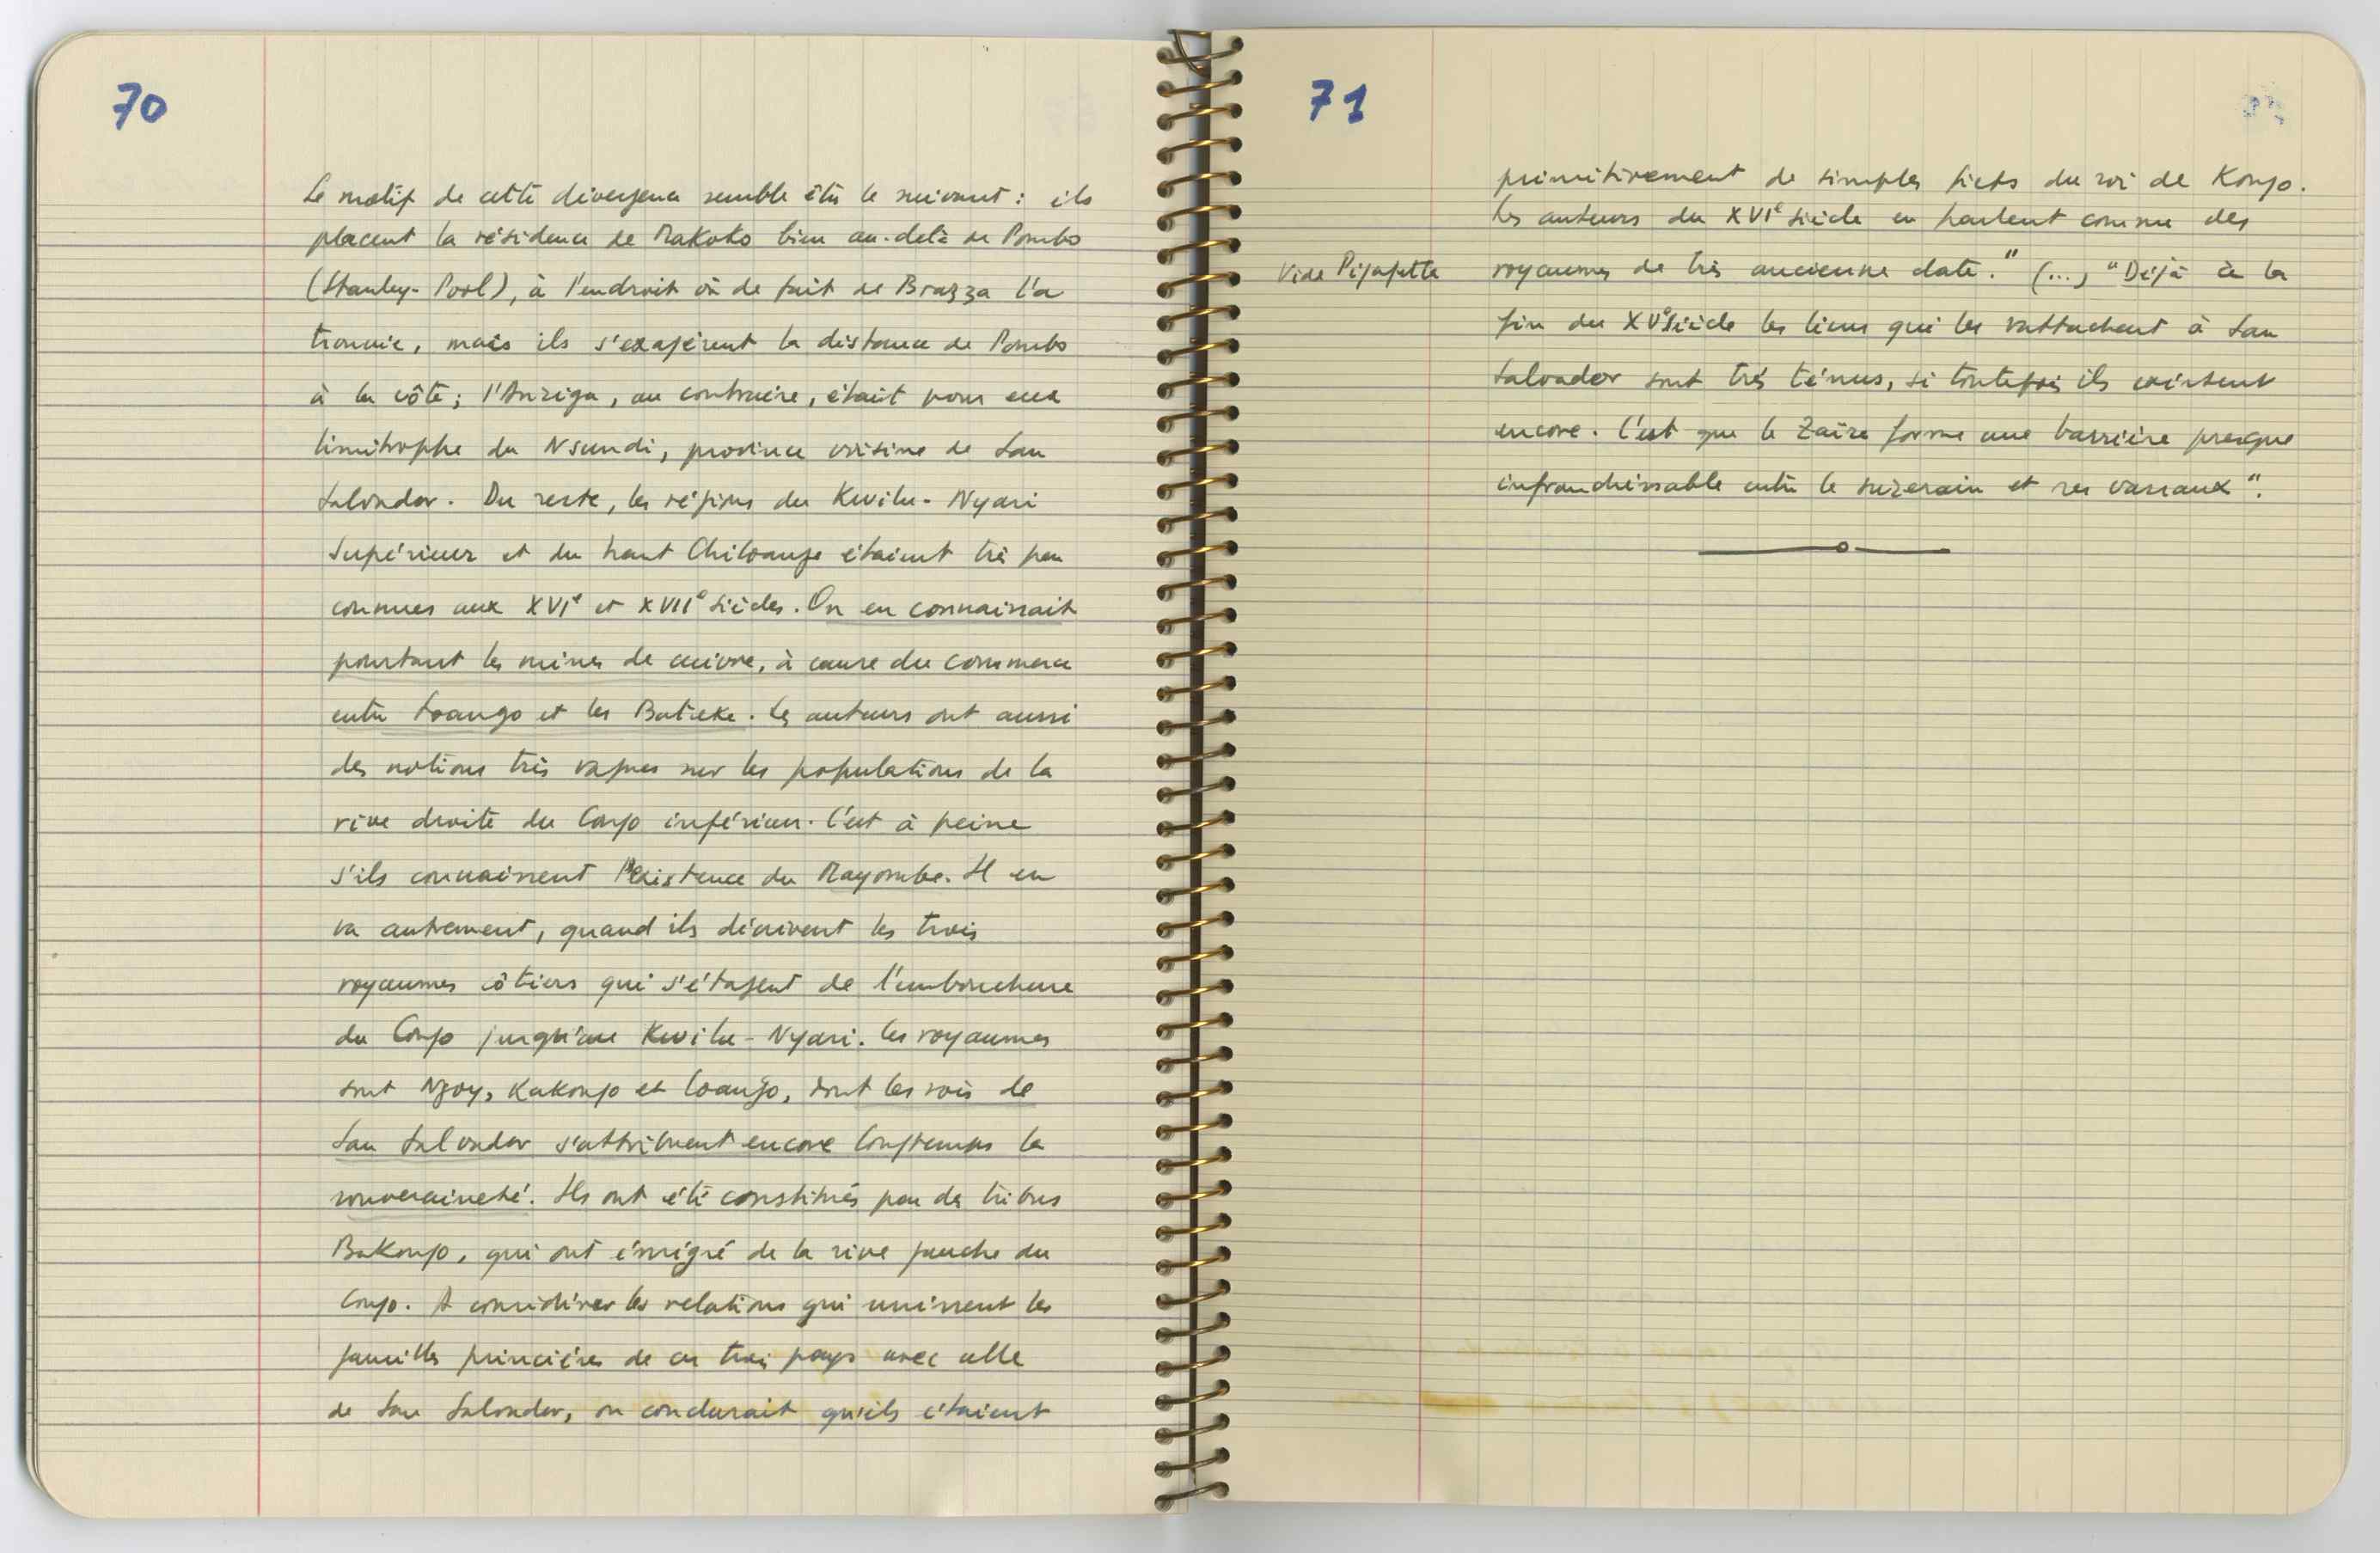 70
Le motif de cette divergence semble être le suivant : ils
placent la résidence de Makoko bien au-delà de Pombo
(Stanley-Pool), à l'endroit où de fait de Brazza l'a
trouvée, mais ils s'exagèrent la distance de Pombo
à la côte; l'Anziga, au contraire, était pour eux
limitrophe du Nsundi, province voisine de San
Salvador. Du reste, les régions du Kwilu-Nyari
supérieur et du haut Chiloango étaient très peu
connues aux XVIe et XVIIe siècles. On en connaissait
pourtant les mines de cuivre, à cause du commerce
entre Loango et les Bateke. Les auteurs ont aussi
des notions très vagues sur les populations de la
rive droite du Congo inférieur. C'est à peine
s'ils connaissent l'existence du Mayombe. Il en
va autrement, quand ils décrivent les trois
royaumes côtiers qui s'étagent de l'embouchure
du Congo jusqu'au Kwilu-Nyari. Les royaumes
sont Ngoy, Kakongo et Loango, dont les rois de
San Salvador s'attribuent encore longtemps la
souveraineté. Ils ont été constitués par des tribus
BaKongo, qui ont émigré de la rive gauche du
Congo. A considérer les relations qui unissent les
familles princières de ces trois pays avec celle
de San Salvador, on conclurait qu'ils étaient
71
primitivement de simples fiefs du roi de Kongo.
Les auteurs du XVIe siècle en parlent comme des
Vide Pigafetta royaumes de très ancienne date." (...) "Déjà à la
fin du XVe siècle les liens qui les rattachent à San
Salvador sont très ténus, si toutefois ils existent
encore. C'est que le Zaïre forme une barrière presque
infranchissable entre le suzerain et ses vassaux".